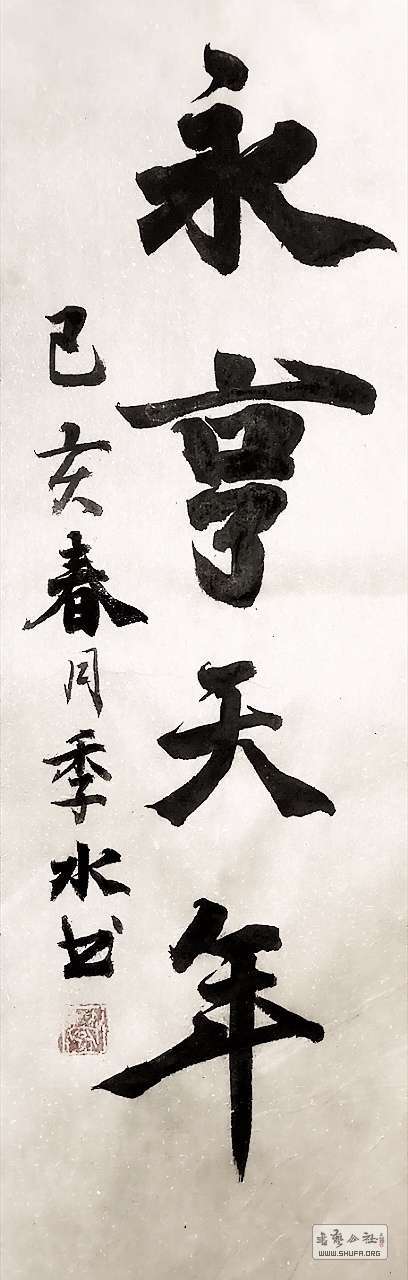 永亨天年
己亥春月季水书
书艺公社
WWW.SHUFA.ORG